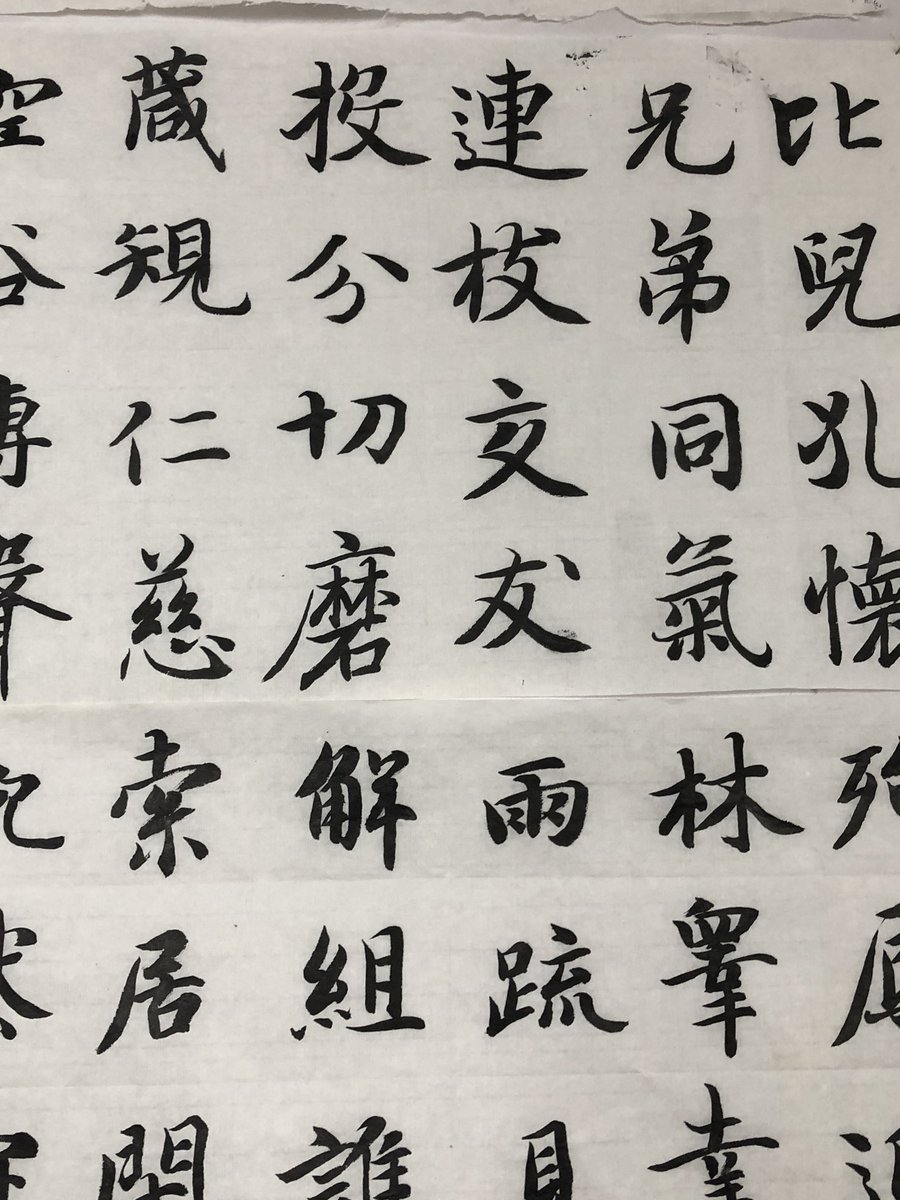 比兒孔懷
兄弟同氣
連枝交友
投分切磨
箴規仁慈
空谷傳聲
殆
林皋幸
兩疏見
解組誰
索居閑